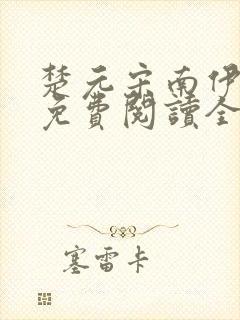 楚元宋南伊
免費閱讀全
塞雷卡